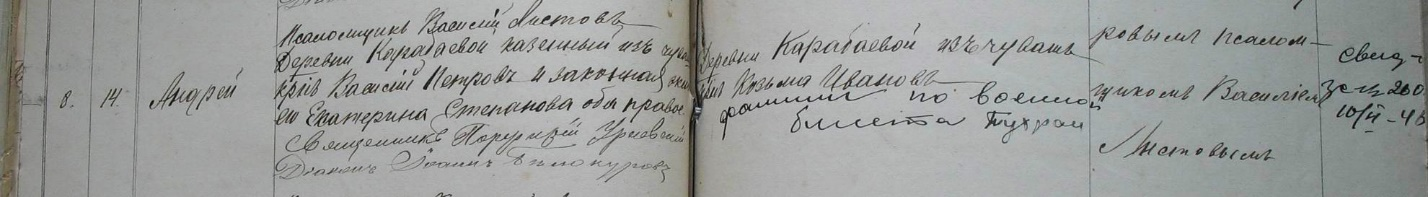 Псаломщикъ Василій Листовъ
8. 14. Андрей
Деревни Карабаевой казенный изъ чува-
Василій Петровъ и законная жена
его Екатерина Степанова оба правос.
Священникъ Порфирій
Діаконъ Іоаннъ Бѣлокуровъ
Деревни Карабаевой изъ чувашъ
Козьма Ивановъ
фамилии по военной
билета Тухран
ровымъ псалом-
щикомъ Василіемъ
Листовымъ
свид-
за № 260
10/II-46